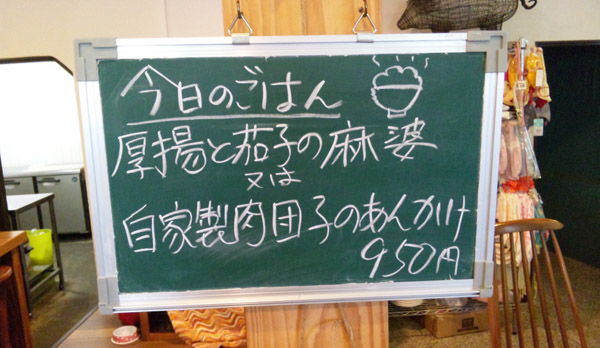 今日のごはん
厚揚と茄子の麻婆
又は
自家製肉団子のあんかけ
950円